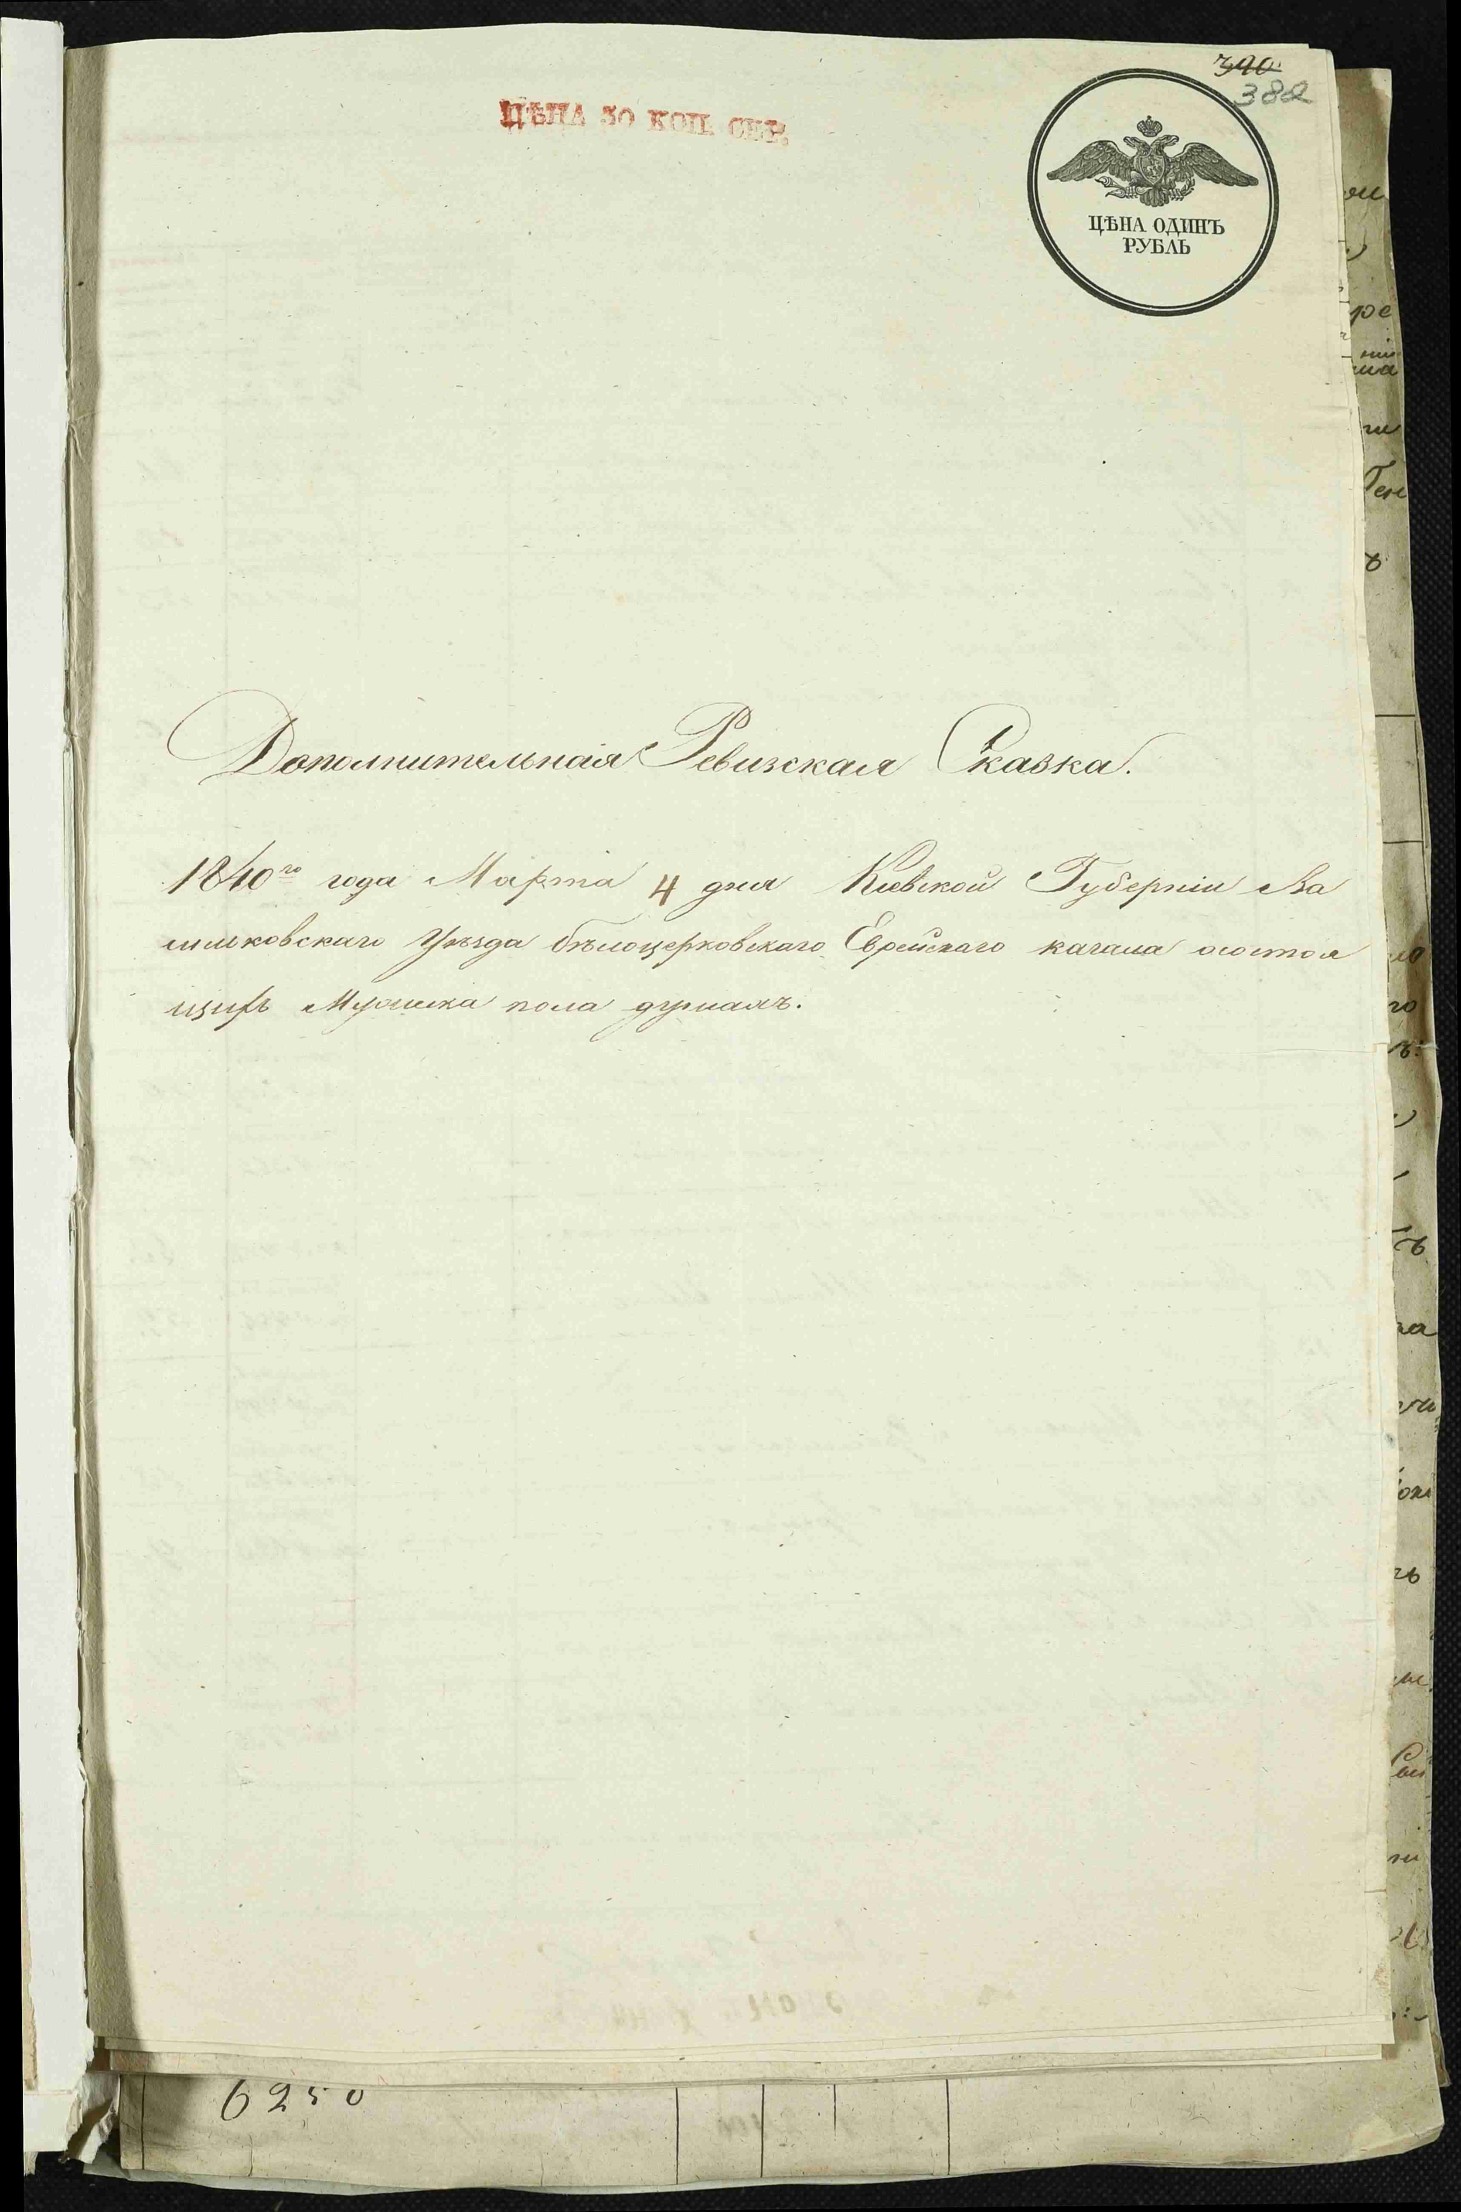 390
382
ЦѢНА 30 КОП. СЕР.
ЦѢНА ОДИНЪ
РУБЛЬ
Дополнительная Ревизская Сказка.
1840го года Марта 4 дня Кіевской Губерніи Ва
сильковскаго Уѣзда бѣлоцерковскаго Еврейскаго кагала о состоя
щихъ Мужеска пола душахъ.
6250